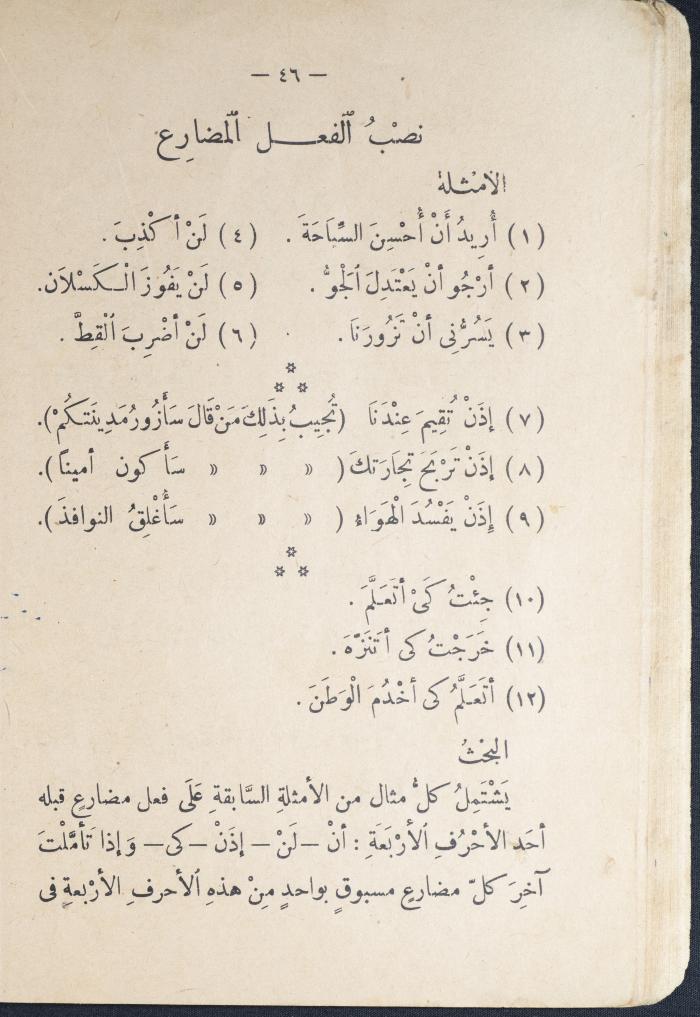 — ٤٦ —
نصْبُ ٱلفعـــل ٱلمضارِع
الأمْثلة
(١) أُرِيدُ أَنْ أُحْسِنَ السِّبَاحَةَ . (٤) لَنْ أكْذِبَ .
(٢) أرْجُو أنْ يَعْتَدِلَ ٱلجَوُّ . (٥) لَنْ يَفُوزَ الْـكَسْلَان.
(٣) يَسُرُّنِى أنْ تَزُورَنَا . (٦) لَنْ أضْرِبَ ٱلْقِطَّ .
(٧) إذَنْ تُقِيمَ عِنْدَنَا (تُجِيبُ بِذَلِكَ مَنْ قَالَ سَأَزُورُ مَدِينَتَـكُمْ).
(٨) إذَنْ تَرْبَحَ تِجَارَتكَ ( « » « » سَأَكون أمينًا).
(٩) إِذَنْ يَفْسُدَ الْهَوَاءُ ( « » « » سَأُغْلِقُ النوافذَ).
(١٠) جِئْتُ كَىْ أتَعَلَّمَ .
(١١) خَرَجْتُ كى أتَنَزَّهَ .
(١٢) أتَعَلَّمُ كى أخْدُمَ الْوَطَنَ .
البحْثُ
يَشْتَمِلُ كلُّ مثال من الأمثلةِ السَّابقةِ عَلَى فعل مضارعٍ قبله
أحَد الأحْرُفِ ٱلأرْبَعَةِ : أنْ — لَنْ — إذَنْ — كى — وَإذا تأمَّلْتَ
آخِرَ كلّ مضارعٍ مسبوقٍ بواحدٍ مِنْ هذهِ ٱلأحرفِ الأرْبعةِ فى